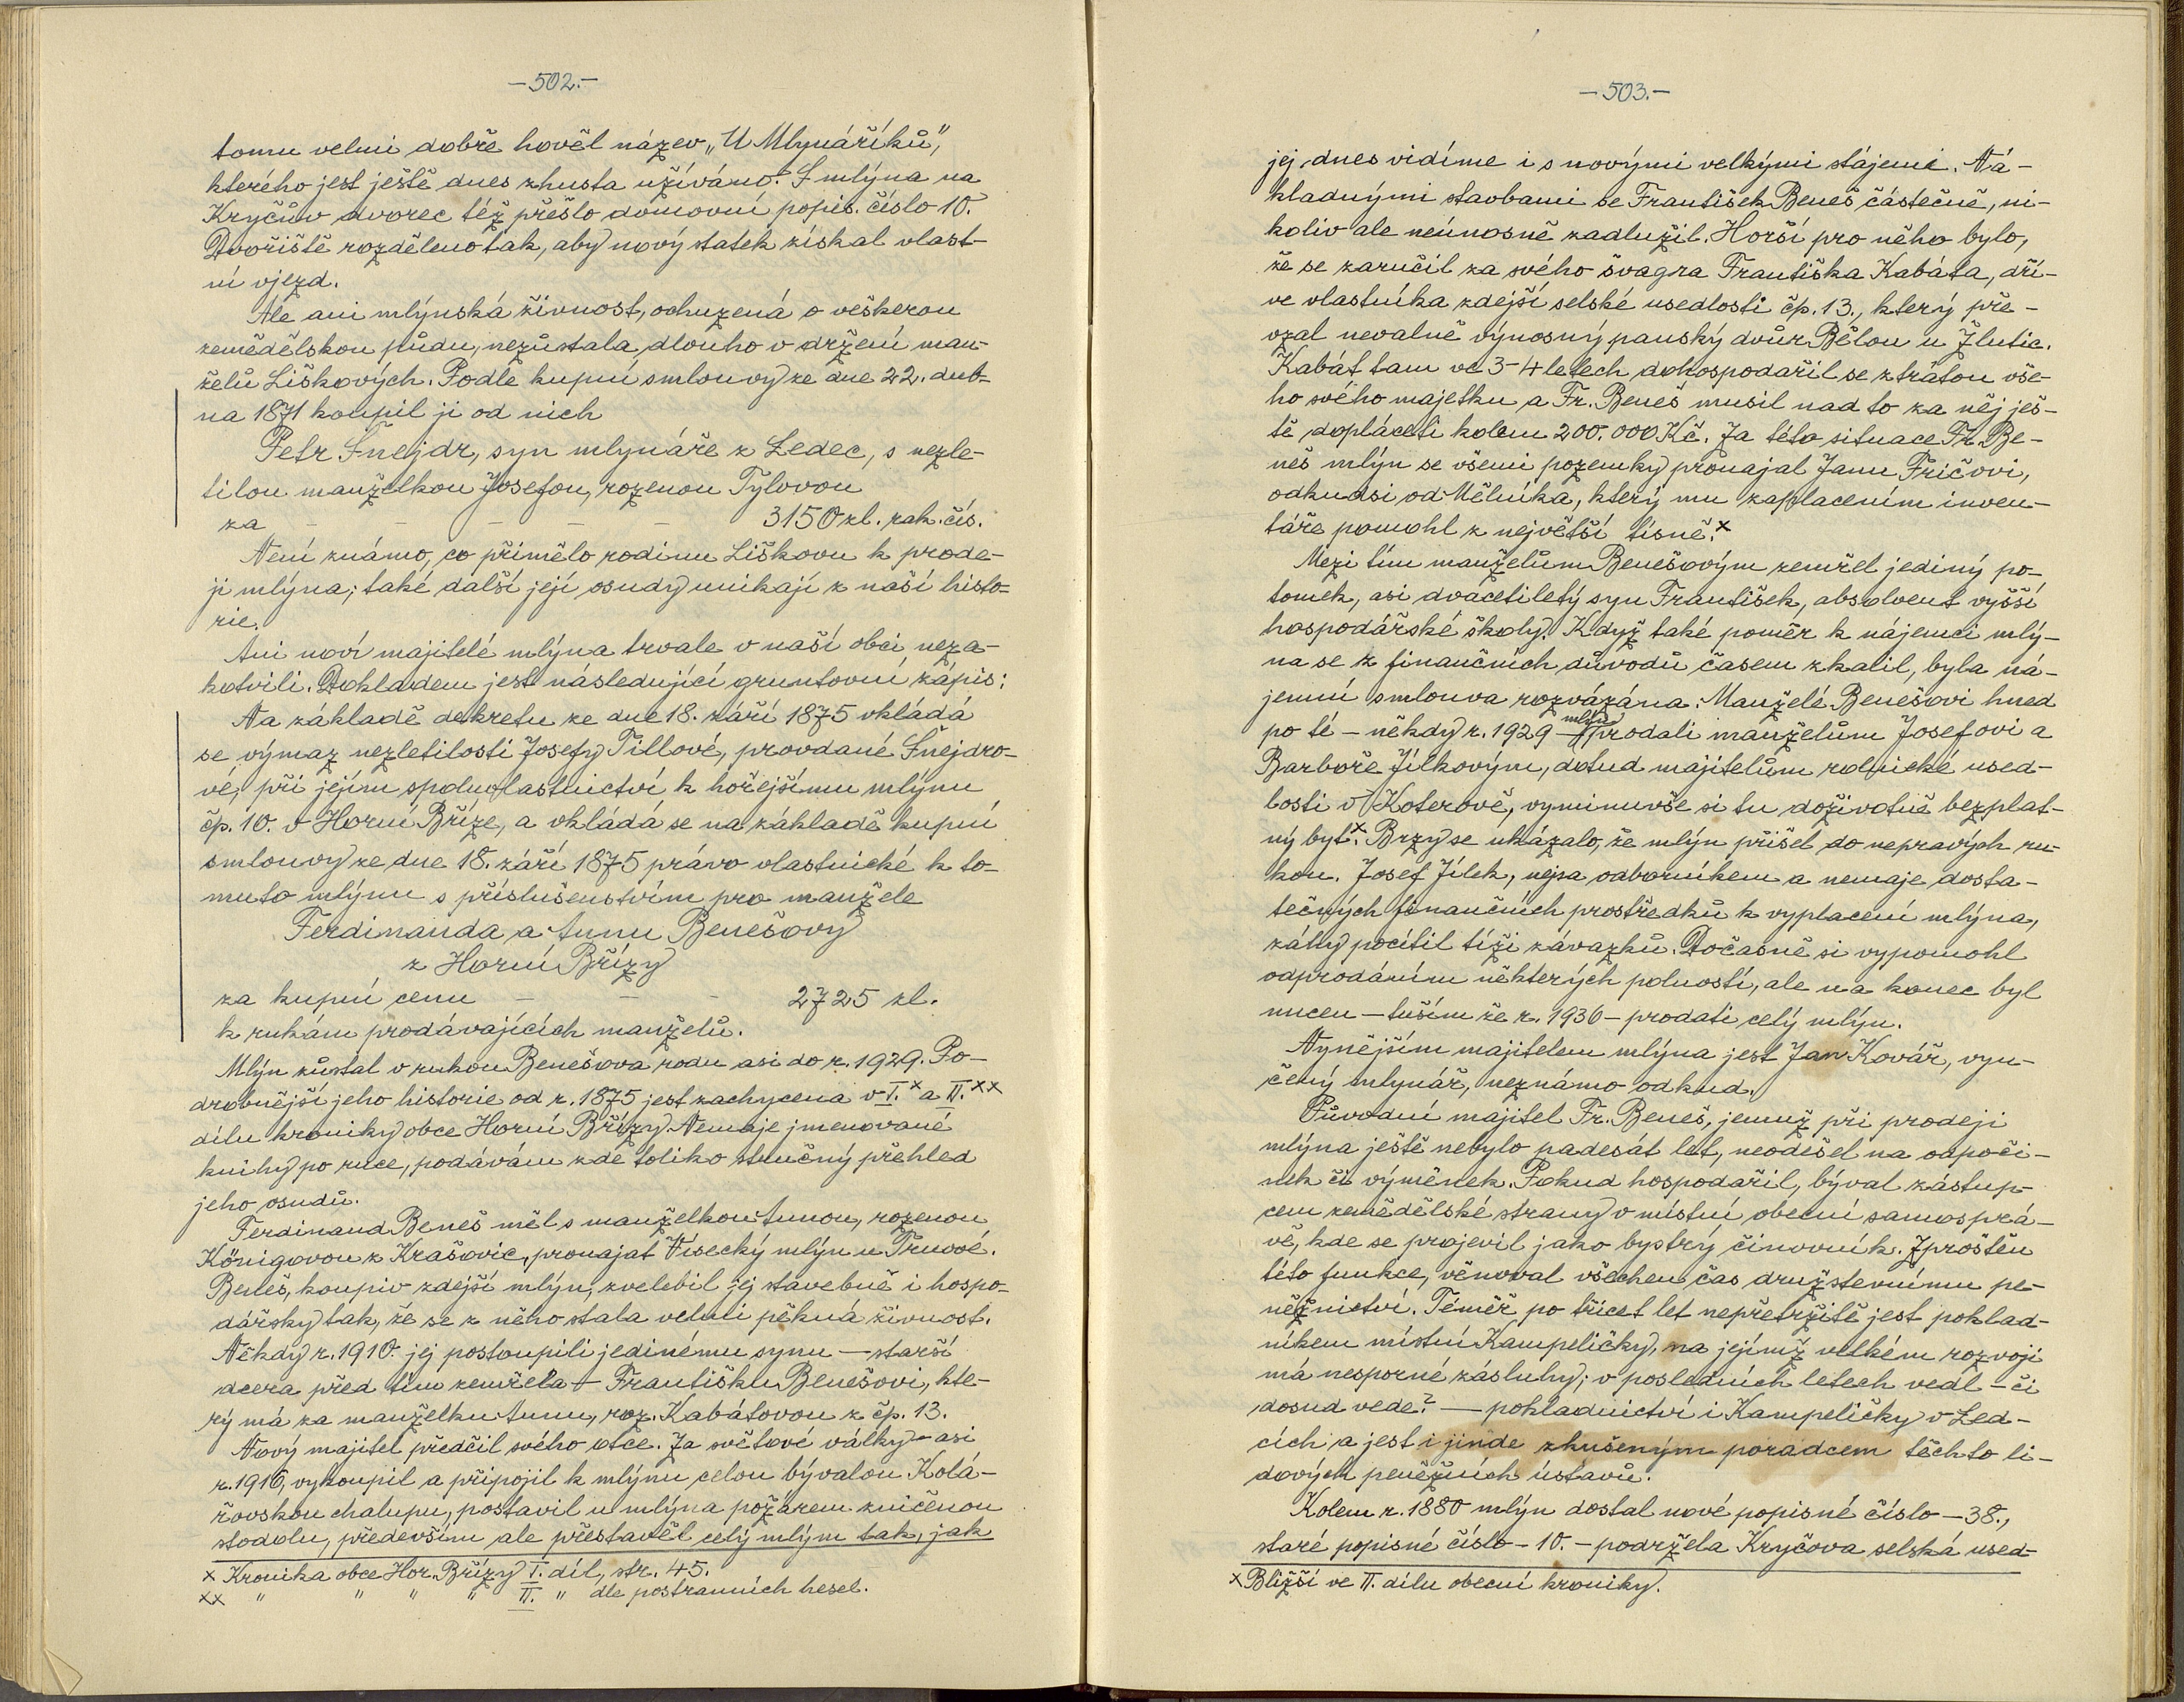 –502.–
tomu velmi dobře hověl název „U Mlynáříků",
kterého jest ještě dnes zhusta užíváno. S mlýna na
Kryčův dvorec též přešlo domovní popis. číslo 10.
Dvořiště rozděleno tak, aby nový statek získal vlast-
ní vjezd.
Ale ani mlýnská živnost, ochuzená o veškerou
zemědělskou půdu, nezůstala dlouho v držení man-
želů Liškových. Podle kupní smlouvy ze dne 22. dub-
na 1871 koupil ji od nich
Petr Šnejdr, syn mlynáře z Ledec, s nezle-
tilou manželkou Josefou, rozenou Tylovou
za – – – – – 3150 zl. rak. čís.
Není známo, co přimělo rodinu Liškovu k prode-
ji mlýna; také další její osudy unikají z naší histo-
rie.
Ani noví majitelé mlýna trvale v naší obci neza-
kotvili. Dokladem jest následující gruntovní zápis:
Na základě dekretu ze dne 18. září 1875 vkládá
se výmaz nezletilosti Josefy Tillové, provdané Šnejdro-
vé, při jejím spoluvlastnictví k hořejšímu mlýnu
čp. 10. v Horní Bříze, a vkládá se na základě kupní
smlouvy ze dne 18. září 1875 právo vlastnické k to-
muto mlýnu s příslušenstvím pro manžele
Ferdinanda a Annu Benešovy
z Horní Břízy
za kupní cenu – – – 2725 zl.
k rukám prodávajících manželů.
Mlýn zůstal v rukou Benešova rodu asi do r. 1929. Po-
drobnější jeho historie od r. 1875 jest zachycena v I.x a II.xx
dílu kroniky obce Horní Břízy. Nemaje jmenované
knihy po ruce, podávám zde toliko stručný přehled
jeho osudů.
Ferdinand Beneš měl s manželkou Annou, rozenou
Königovou z Krašovic, pronajat Vísecký mlýn u Trnové.
Beneš, koupiv zdejší mlýn, zvelebil jej stavebně i hospo-
dářsky tak, že se z něho stala velmi pěkná živnost.
Někdy r. 1910. jej postoupili jedinému synu – starší
dcera před tím zemřela – Františku Benešovi, kte-
rý má za manželku Annu, roz. Kabátovou z čp. 13.
Nový majitel předčil svého otce. Za světové války – asi
r. 1916, vykoupil a připojil k mlýnu celou bývalou Kolá-
řovskou chalupu, postavil u mlýna požárem zničenou
stodolu, především ale přestavěl celý mlým tak, jak
x Kronika obce Hor. Břízy I. díl, str. 45.
xx " " " " II. " dle postranních hesel.
–503.–
jej dnes vidíme i s novými velkými stájemi. Ná-
kladnými stavbami se František Beneš částečně, ni-
koliv ale neúnosně zadlužil. Horší pro něho bylo,
že se zaručil za svého švagra Františka Kabáta, dří-
ve vlastníka zdejší selské usedlosti čp. 13., který pře-
vzal nevalně výnosný panský dvůr Bělou u Žlutic.
Kabát tam ve 3-4 letech dohospodařil se ztrátou vše-
ho svého majetku a Fr. Beneš musil nad to za něj ješ-
tě dopláceti kolem 200.000 Kč. Za této situace Fr. Be-
neš mlýn se všemi pozemky pronajal Janu Fričovi,
odkudsi od Mělníka, který mu zaplacením inven-
táře pomohl z největší tísně.x
Mezi tím manželům Benešovým zemřel jediný po-
tomek, asi dvacetiletý syn František, absolvent vyšší
hospodářské školy. Když také poměr k nájemci mlý-
na se z finančních důvodů časem zkalil, byla ná-
jemní smlouva rozvázána. Manželé Benešovi hned
po té – někdy r. 1929 – mlýn prodali manželům Josefovi a
Barboře Jílkovým, dotud majitelům rolnické used-
losti v Koterově, vyminuvše si tu doživotně bezplat-
ný byt.x Brzy se ukázalo, že mlýn přišel do nepravých ru-
kou. Josef Jílek, nejsa odborníkem a nemaje dosta-
tečných finančních prostředků k vyplacení mlýna,
záhy pocítil tíži závazků. Dočasně si vypomohl
odprodáním některých polností, ale na konec byl
nucen – tuším že r. 1936 – prodati celý mlýn.
Nynějším majitelem mlýna jest Jan Kovář, vyu-
čený mlynář, neznámo odkud.
Původní majitel Fr. Beneš, jemuž při prodeji
mlýna ještě nebylo padesát let, neodešel na odpoči-
nek či výměnek. Pokud hospodařil, býval zástup-
cem zemědělské strany v místní obecní samosprá-
vě, kde se projevil jako bystrý činovník. Zproštěn
této funkce, věnoval všechen čas družstevnímu pe-
něžnictví. Téměř po třicet let nepřetržitě jest poklad-
níkem místní Kampeličky, na jejímž velkém rozvoji
má nesporné zásluhy; v posledních letech vedl – či
dosud vede? – pokladnictví i Kampeličky v Led-
cích a jest i jinde zkušeným poradcem těchto li-
dových peněžních ústavů.
Kolem r. 1880 mlýn dostal nové popisné číslo – 38.,
staré popisné číslo – 10. – podržela Kryčova selská used-
x Bližší ve II. dílu obecní kroniky.